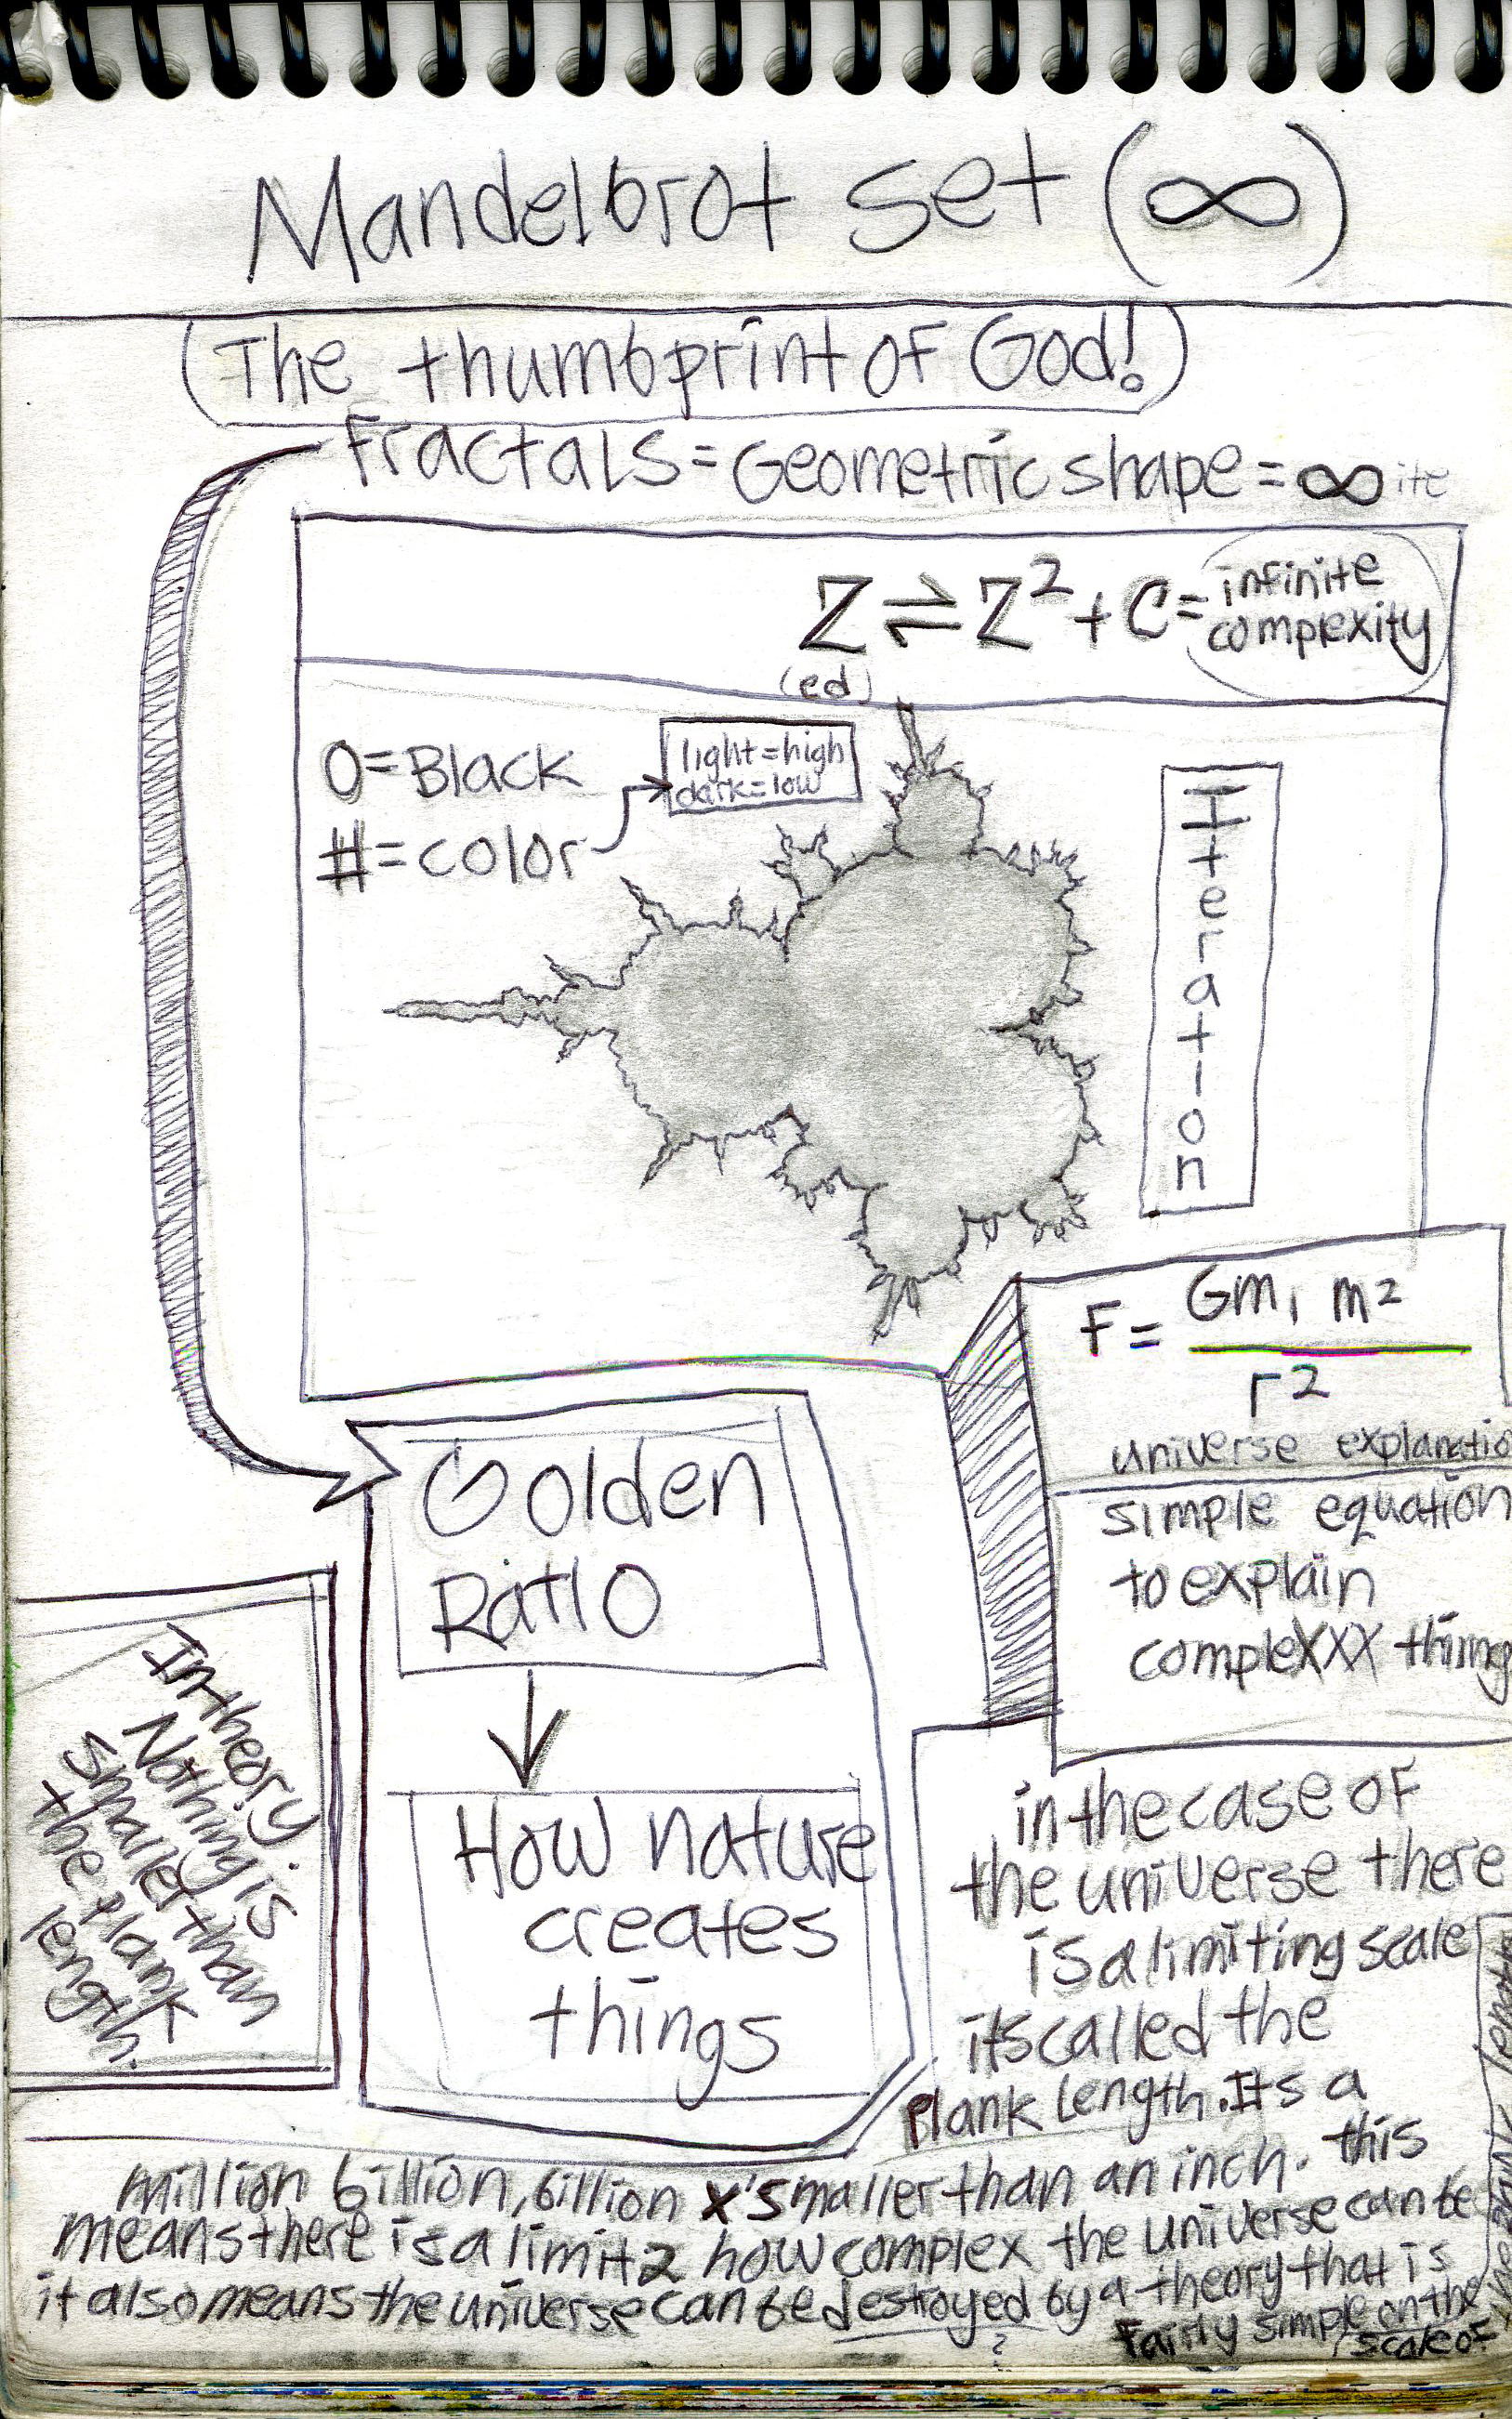 Mandelbrot set (∞)
(The thumbprint of God!)
Fractals = Geometric shape = ∞ite
Z ⇌ Z² + C = infinite
complexity
(ed)
0=Black
#=color
light=high
dark=low
Iteration
F = Gm₁ m2
r²
universe explanatio
simple equation
to explain
complexxx thing
Golden
Ratio
How nature
creates
things
In theory.
Nothing is
smaller than
the plank
length.
in the case of
the universe there
is a limiting scale
its called the
plank length. Its a
million billion, billion x's smaller than an inch. this
means there is a limit 2 how complex the universe can be
it also means the universe can be destroyed by a theory that is
?
fairly simple on the
scale of